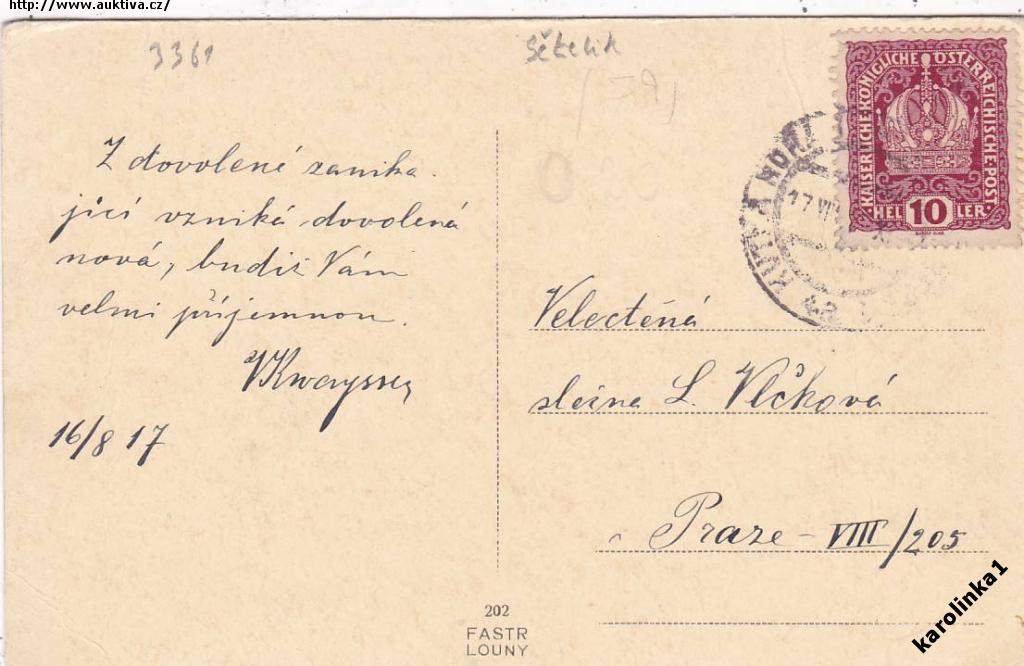 http://www.auktiva.cz/
3361
Sětelík
Z dovolené zanika
jící vzniká dovolená
nová, budiž Vám
velmi příjemnou.
VKwaysser
16/8 17
KAISERLICHE KÖNIGLICHE ÖSTERREICHISCHE POST
HEL 10 LER
KUTNÁ HORA
17 VII
Velectěná
slečna L. Vlčková
v Praze - VIII/205
202
FASTR
LOUNY
karolinka1